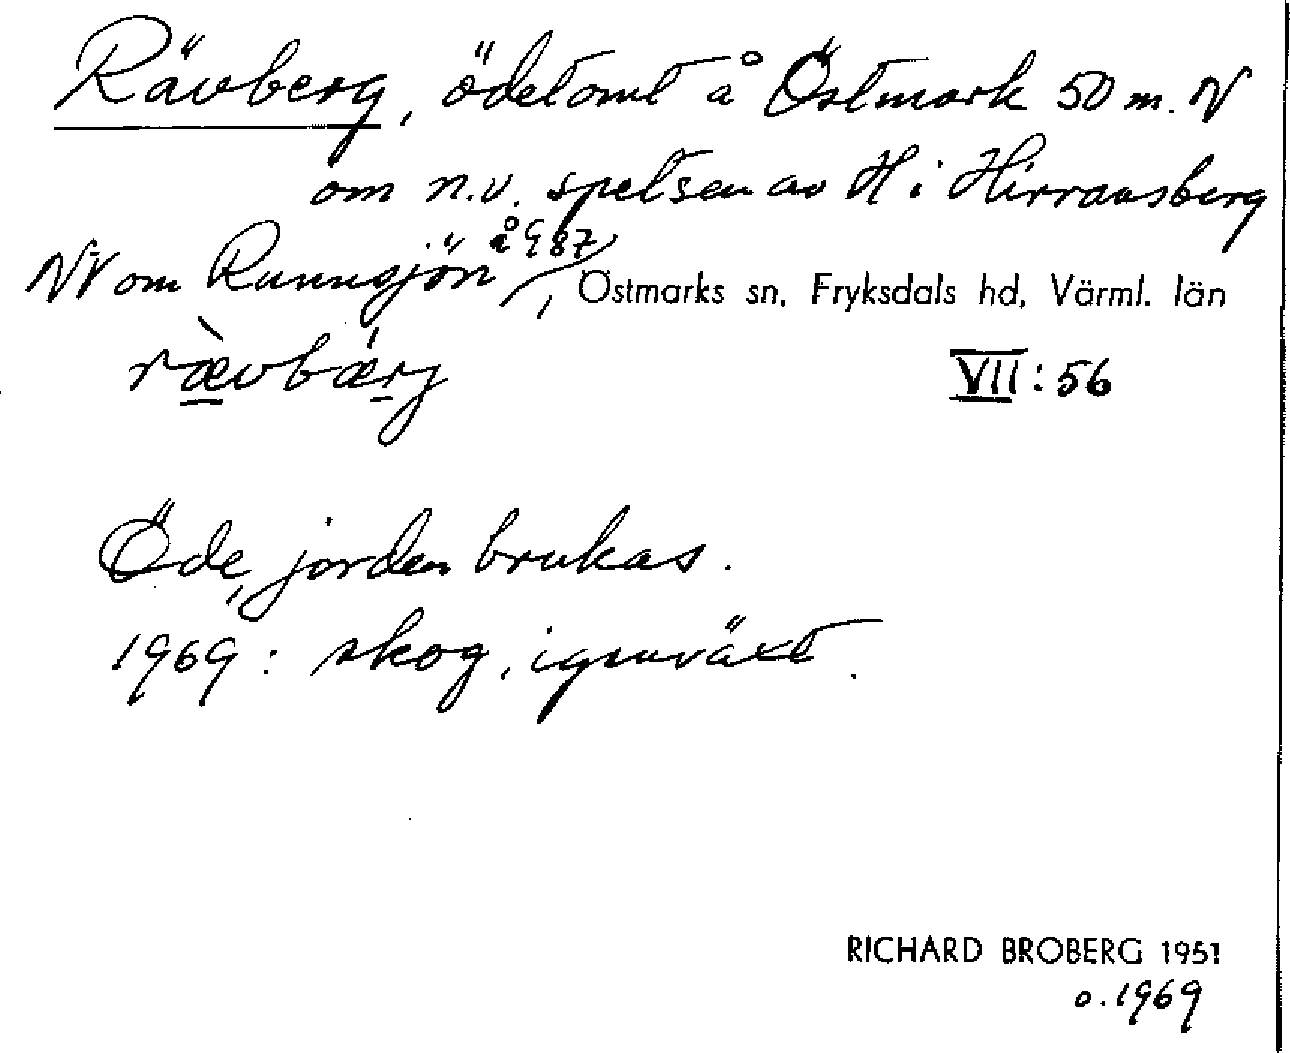 Rävberg, ödetomt å Östmark 50 m. N
om n.v. spetsen av H i Hirransberg
NV om Runnsjön å G 87, Östmarks sn, Fryksdals hd, Värml. län
ræ̀vbǽrj
VII:56
Öde, jorden brukas.
1969: skog, igenväxt.
RICHARD BROBERG 1951
o. 1969